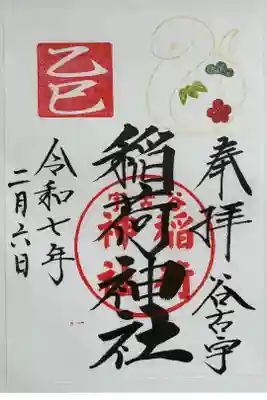 奉拝
谷古宇
稲荷神社
乙巳
令和七年
二月六日